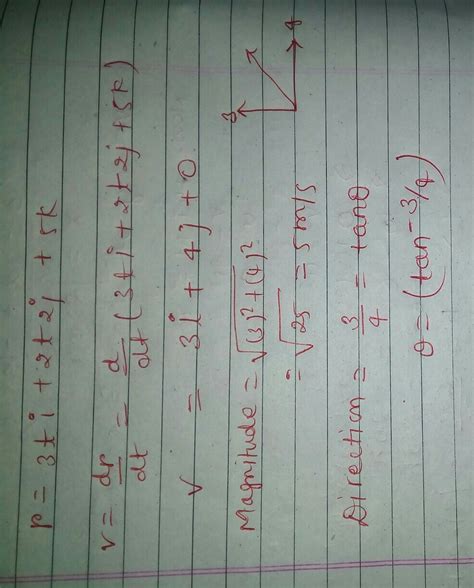 r = 3ti + 2t2j + 5k
v = dr/dt = d/dt (3ti + 2t2j + 5k)
v = 3i + 4j + 0
Magnitude = √(3)²+(4)²
= √25 = 5m/s
3
4
Direction = 3/4 = tanθ
θ = (tan⁻3/4)